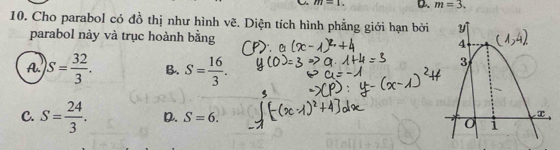 C. m = 1. D. m = 3.
10. Cho parabol có đồ thị như hình vẽ. Diện tích hình phẳng giới hạn bởi
parabol này và trục hoành bằng
(P): a(x-1)²+4
y(0)=3 ⇒ a.1+4=3
⇔ a=-1
⇒ (P): y-(x-1)²+4
A. S = 32/3.
B. S = 16/3.
C. S = 24/3.
D. S = 6.
∫_{-1}^{3} [-(x-1)²+4]dx
y
4
(1,4)
3
O
1
x